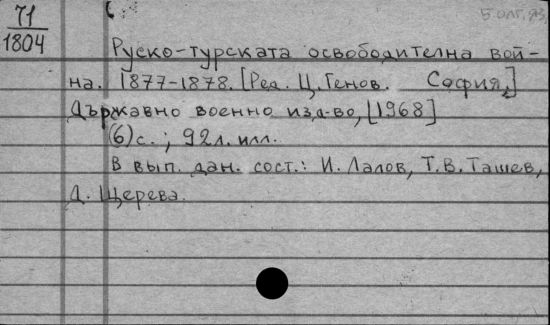 71
1804
Болг. яз.
Руско-турската освободителна вой-
на. 1877-1878. [Ред. Ц. Генов. София,]
Държавно военно изд-во, [1968]
(6) с.; 92 л. илл.
В вып. дан. сост.: И. Лалов, Т. В. Ташев,
Д. Щерева.